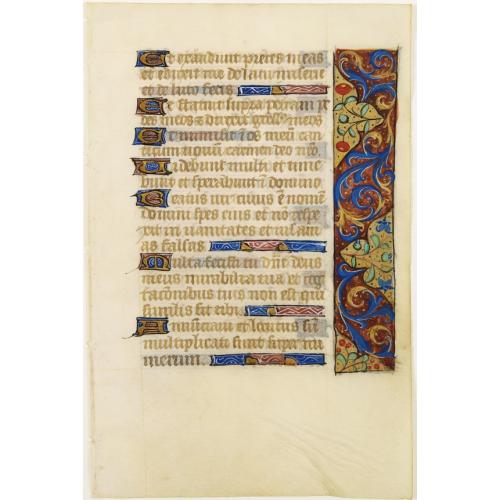 Et exaudivit preces meas
et eduxit me de lacu miserie
et de luto fecis
Et statuit supra petram pe
des meos et direxit gressus meos
Et inmisit in os meum can
ticum novum carmen deo nostro
Videbunt multi et time
bunt et sperabunt in domino
Beatus vir cuius est nomen
domini spes eius et non respe
xit in vanitates et insani
as falsas
Multa fecisti tu domine deus
meus mirabilia tua et cogi
tacionibus tuis non est qui
similis sit tibi
Annunciavi et locutus sum
multiplicati sunt super nu
merum